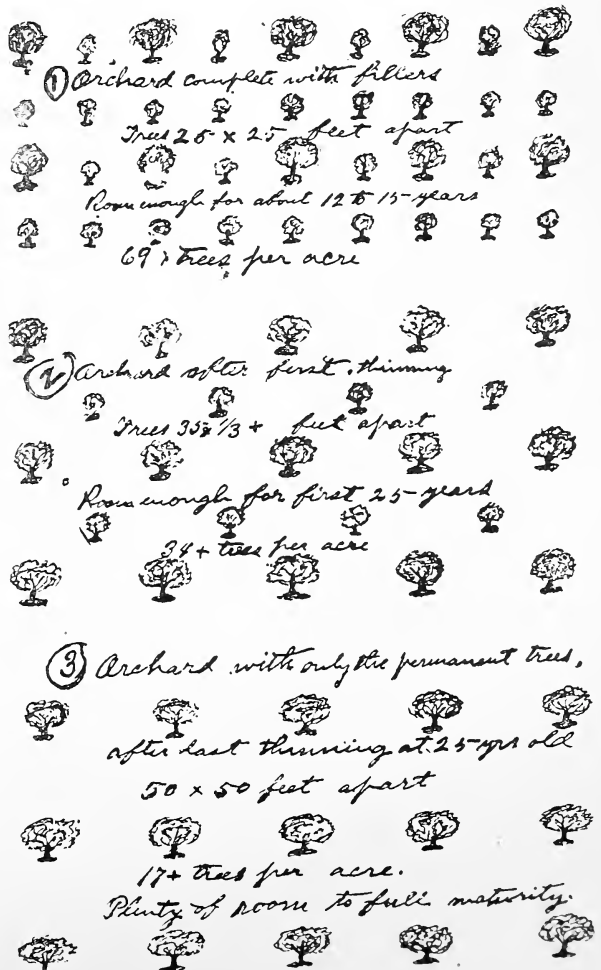 ① Orchard complete with fillers
Trees 25 x 25 feet apart
Room enough for about 12 to 15 years
69 + trees per acre
② Orchard after first thinning
Trees 35 1/3 + feet apart
Room enough for first 25 years
34 + trees per acre
③ Orchard with only the permanent trees,
after last thinning at 25 yrs old
50 x 50 feet apart
17+ trees per acre.
Plenty of room to full maturity.